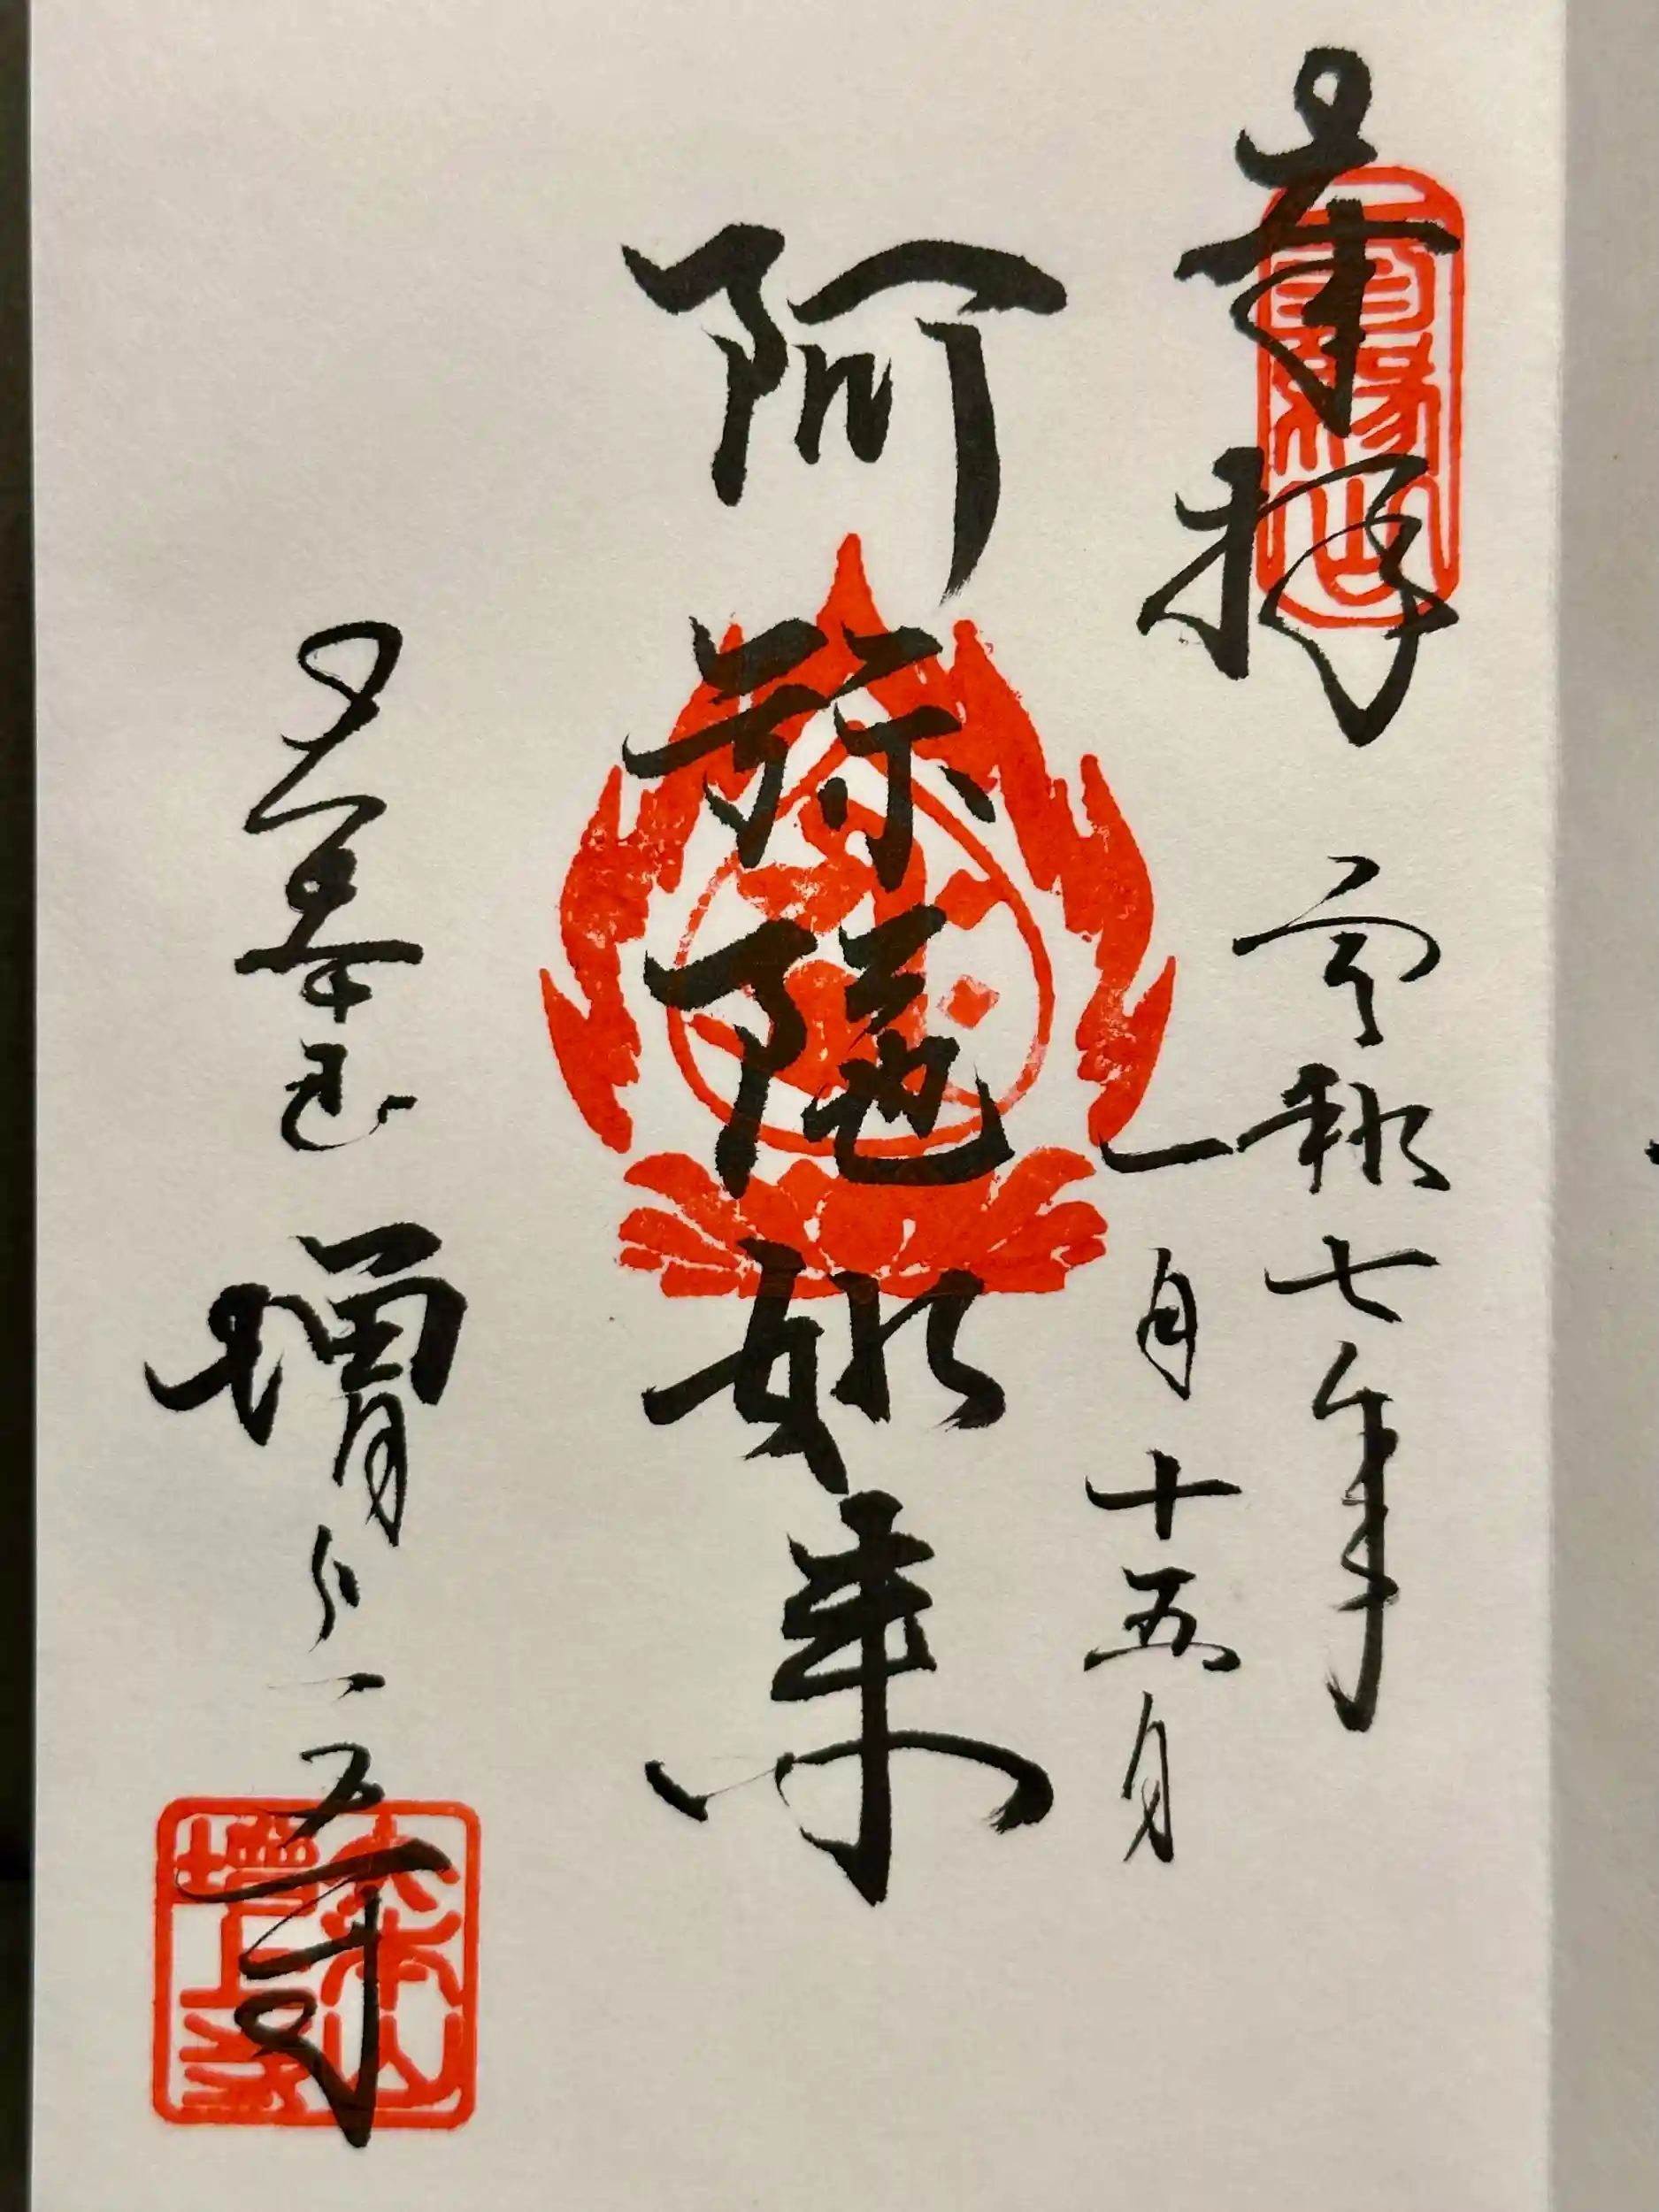 奉拝
令和七年
一月十五日
阿弥陀如来
増上寺
大本山
増上寺